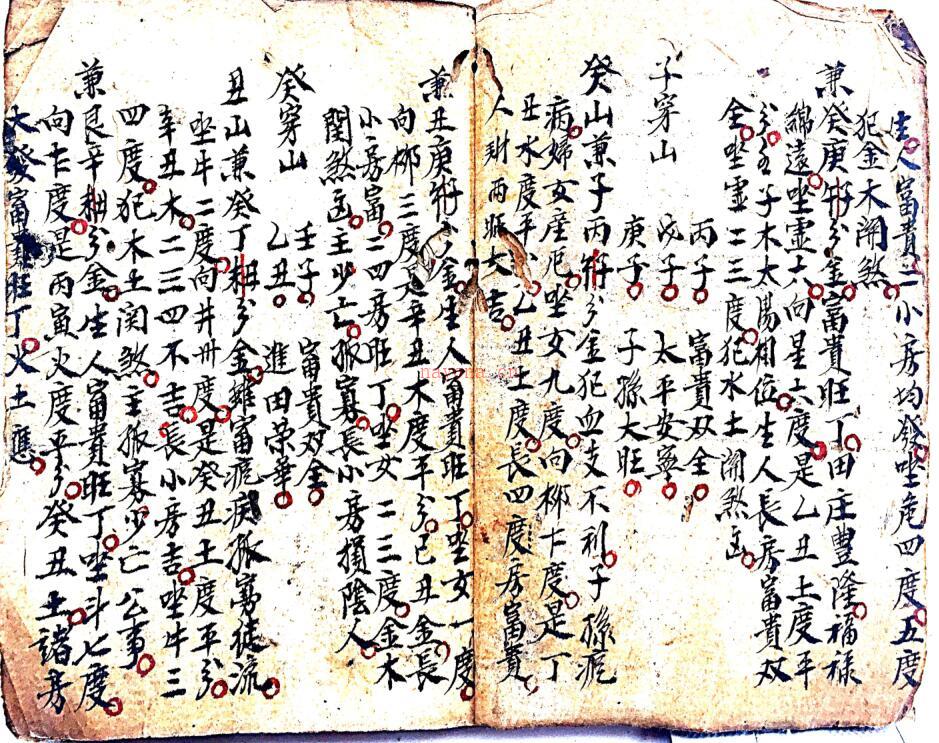 生人富貴二小房均發坐危四度五度
犯金木關煞
兼癸庚子分金富貴旺丁田庄豐隆福祿
綿遠坐虛六向星六度是乙丑土度平
分壬子木太陽相位生人長房富貴双
全坐虛二三度犯水土關煞凶
子穿山
丙子 富貴双全
戊子 太平安寧
庚子 子孫大旺
癸山兼子丙子分金犯血支不利子孫疤
病婦女産厄坐女九度向柳七度是丁
丑水度平分乙丑土度長四度房富貴
人財両旺大吉
兼丑庚子分金生人富貴旺丁坐女一度
向柳三度是辛丑木度平分己丑金長
小房富二四房旺丁坐女二三度金木
関煞凶主少亡孤寡長小房損陰人
癸穿山
壬子 富貴双全
乙丑 進田榮華
丑山兼癸丁丑分金雖富疤疾孤寡徒流
坐牛二度向井卅度是癸丑土度平分
辛丑木二三四不吉長小房吉坐牛三
四度犯木土関煞主孤寡少亡公事
兼艮辛丑分金生人富貴旺丁坐斗七度
向七度是丙寅火度平分癸丑土諸房
大發富貴旺丁火土應